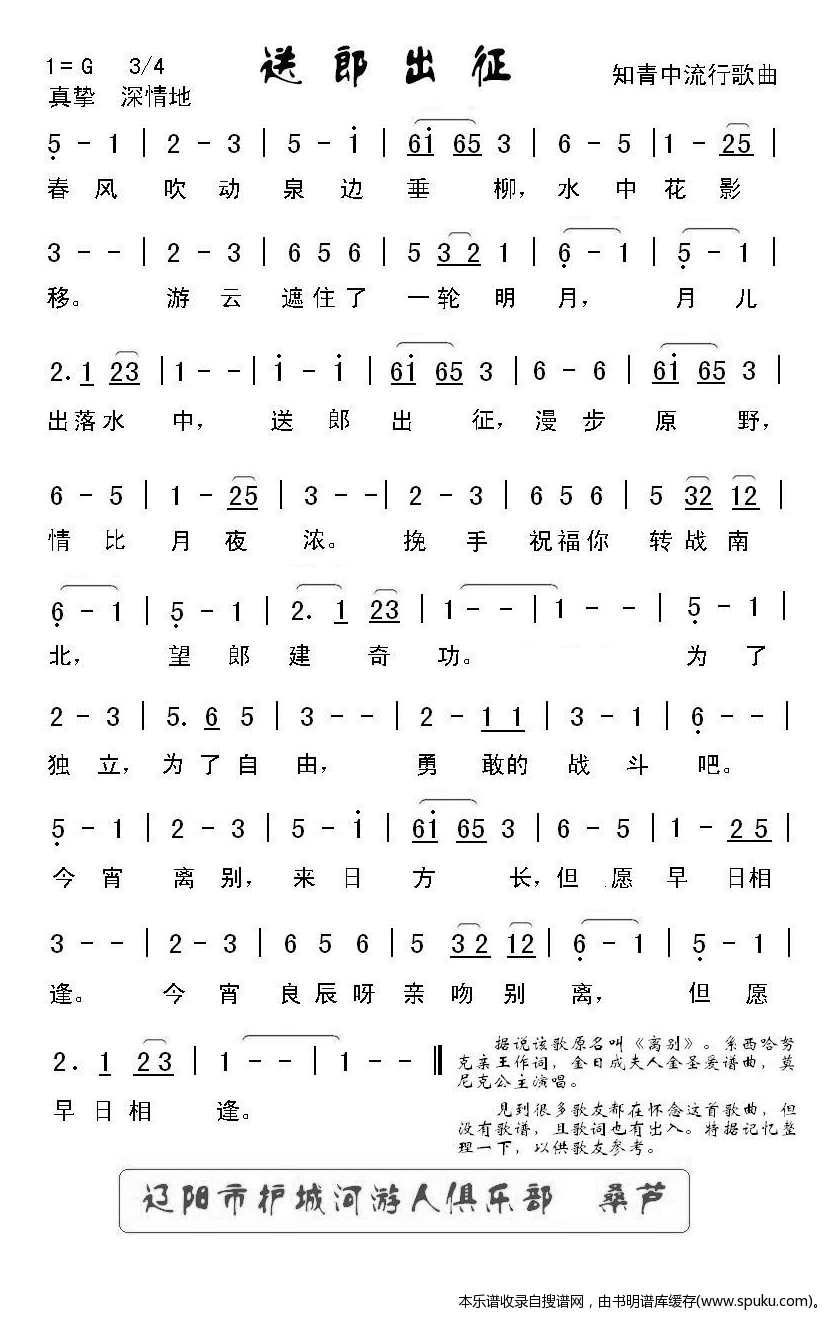 1=G 3/4 送郎出征 知青中流行歌曲
真挚 深情地
5̣ - 1 | 2 - 3 | 5 - i | 6i 65 3 | 6 - 5 | 1 - 25 |
春风 吹动 泉边 垂柳，水中花影
3 - - | 2 - 3 | 6 5 6 | 5 32 1 | 6̣ - 1 | 5̣ - 1 |
移。 游云 遮住了 一轮明月， 月儿
2. 1 23 | 1 - - | i - i | 6i 65 3 | 6 - 6 | 6i 65 3 |
出落水中， 送郎出征，漫步原野，
6 - 5 | 1 - 25 | 3 - - | 2 - 3 | 6 5 6 | 5 32 12 |
情比月夜浓。 挽手祝福你 转战南
6̣ - 1 | 5̣ - 1 | 2. 1 23 | 1 - - | 1 - - | 5̣ - 1 |
北， 望郎建奇功。 为了
2 - 3 | 5. 6 5 | 3 - - | 2 - 1 1 | 3 - 1 | 6̣ - - |
独立，为了自由， 勇敢的战斗吧。
5̣ - 1 | 2 - 3 | 5 - i | 6i 65 3 | 6 - 5 | 1 - 25 |
今宵离别，来日方长，但愿早日相
3 - - | 2 - 3 | 6 5 6 | 5 32 12 | 6̣ - 1 | 5̣ - 1 |
逢。 今宵良辰呀亲吻别离， 但愿
2. 1 23 | 1 - - | 1 - - ‖
早日相逢。
据说该歌原名叫《离别》。系西哈努
克亲王作词，金日成夫人金圣爱谱曲，莫
尼克公主演唱。
见到很多歌友都在怀念这首歌曲，但
没有歌谱，且歌词也有出入。特据记忆整
理一下，以供歌友参考。
辽阳市护城河游人俱乐部 桑芦
本乐谱收录自搜谱网，由书明谱库缓存(www.spuku.com)。